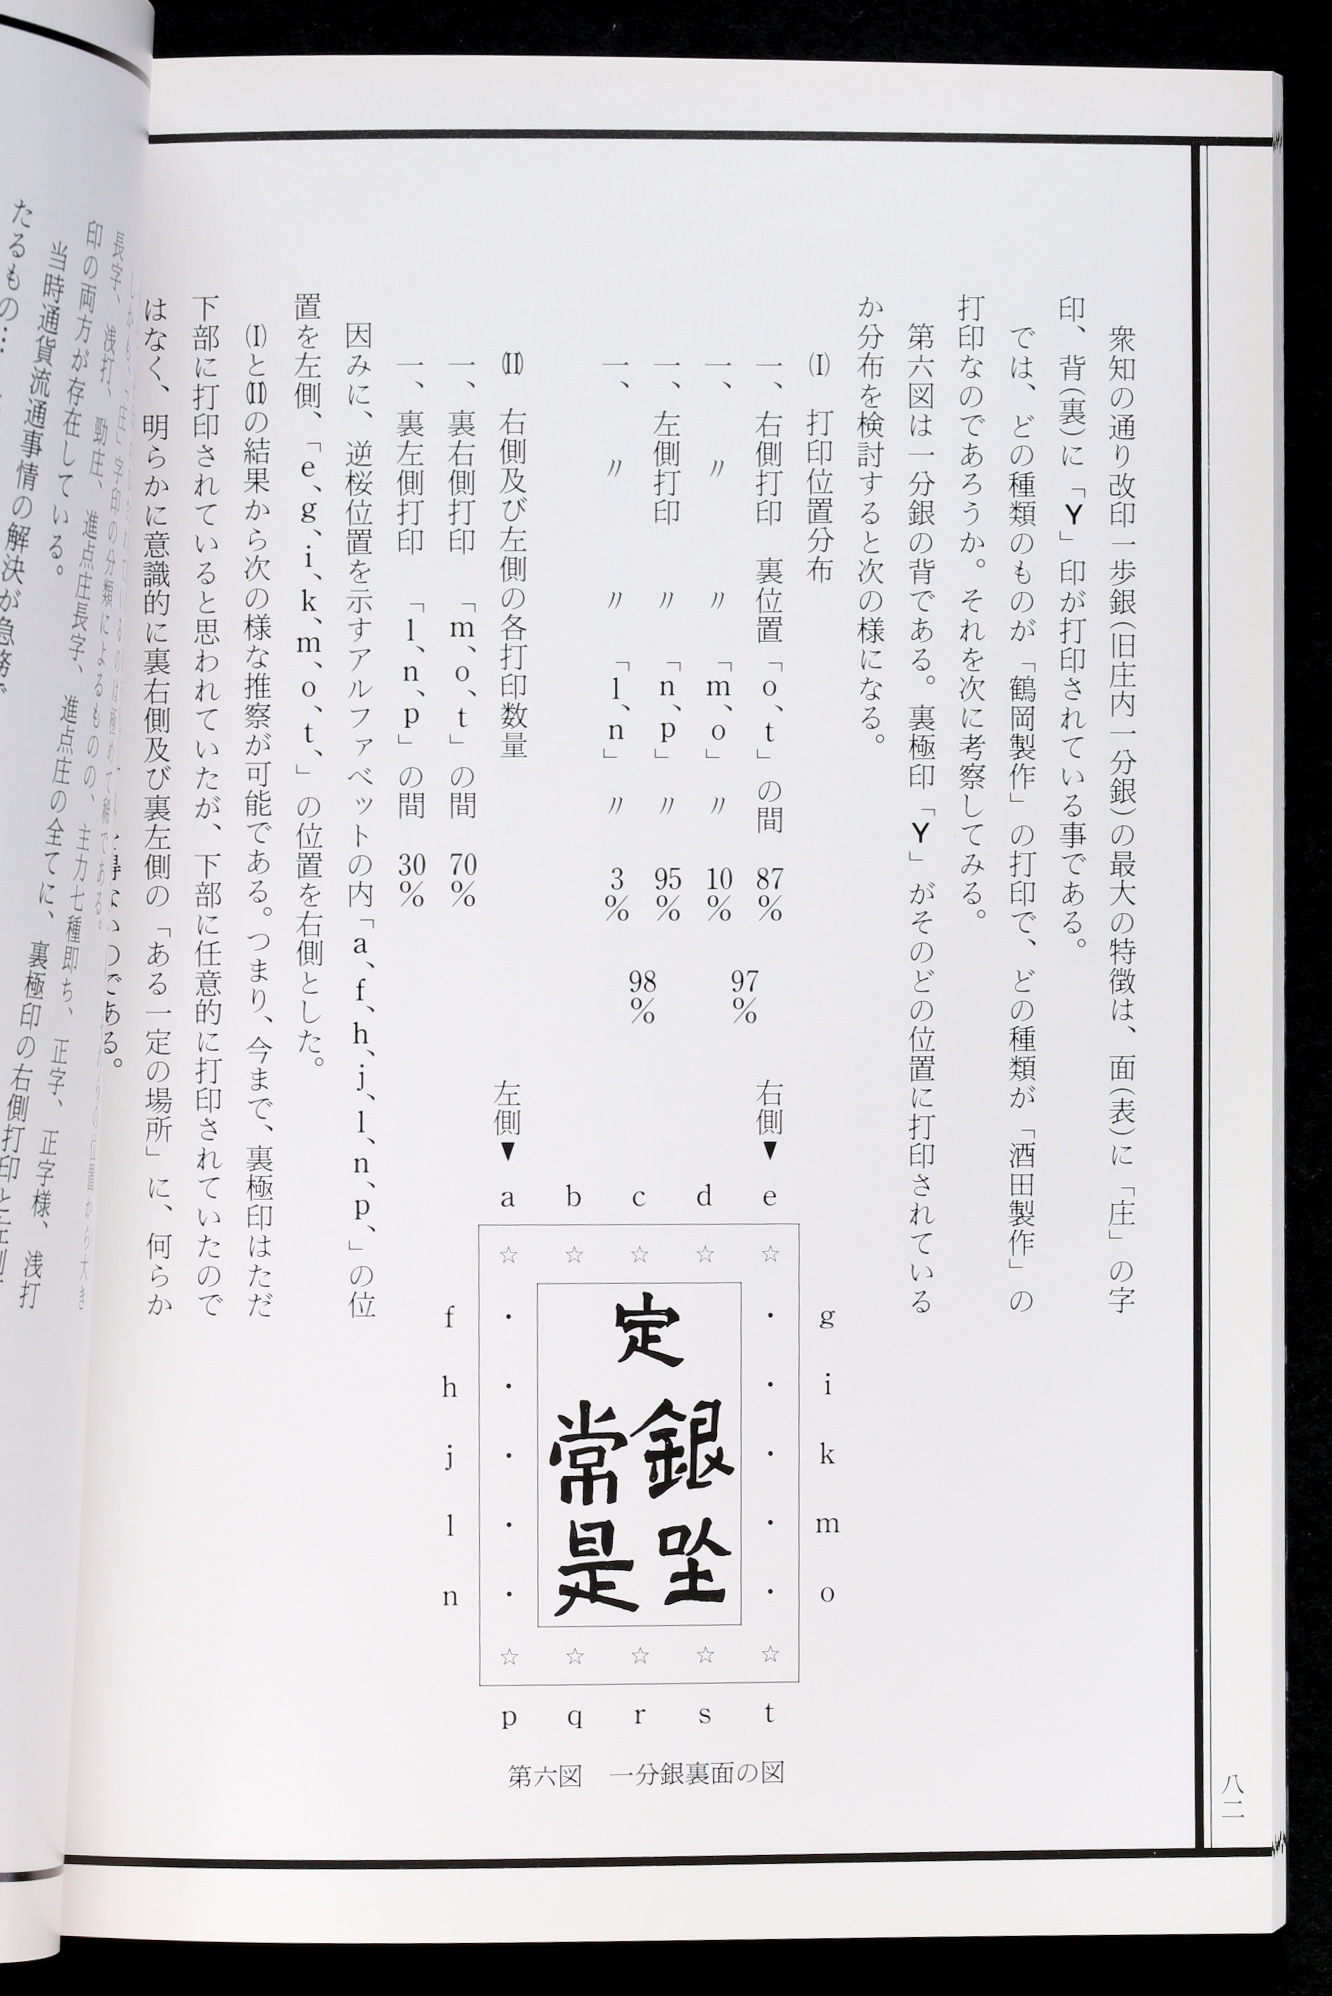 衆知の通り改印一歩銀(旧庄内一分銀)の最大の特徴は、面(表)に「庄」の字
印、背(裏)に「Y」印が打印されている事である。
では、どの種類のものが「鶴岡製作」の打印で、どの種類が「酒田製作」の
打印なのであろうか。それを次に考察してみる。
第六図は一分銀の背である。裏極印「Y」がそのどの位置に打印されている
か分布を検討すると次の様になる。
(I) 打印位置分布
一、右側打印 裏位置「o、t」の間 87%
一、 〃 〃 「m、o」 〃 10%
97%
一、左側打印 〃 「n、p」 〃 95%
一、 〃 〃 「l、n」 〃 3%
98%
(II) 右側及び左側の各打印数量
一、裏右側打印 「m、o、t」の間 70%
一、裏左側打印 「l、n、p」の間 30%
因みに、逆桜位置を示すアルファベットの内「a、f、h、j、l、n、p、」の位
置を左側、「e、g、i、k、m、o、t、」の位置を右側とした。
(I)と(II)の結果から次の様な推察が可能である。つまり、今まで、裏極印はただ
下部に打印されていると思われていたが、下部に任意的に打印されていたので
はなく、明らかに意識的に裏右側及び裏左側の「ある一定の場所」に、何らか
右側▼
左側▼
a b c d e
☆ ☆ ☆ ☆ ☆
f ・ ・ g
h ・ ・ i
j ・ ・ k
l ・ ・ m
n ・ ・ o
定
銀坐
常是
☆ ☆ ☆ ☆ ☆
p q r s t
第六図 一分銀裏面の図
八二
のである。
長字、浅打、勁庄、進点庄長字、進点庄の全てに、裏極印の右側打印と左側
印の両方が存在している。
当時通貨流通事情の解決が急務で
たるもの…